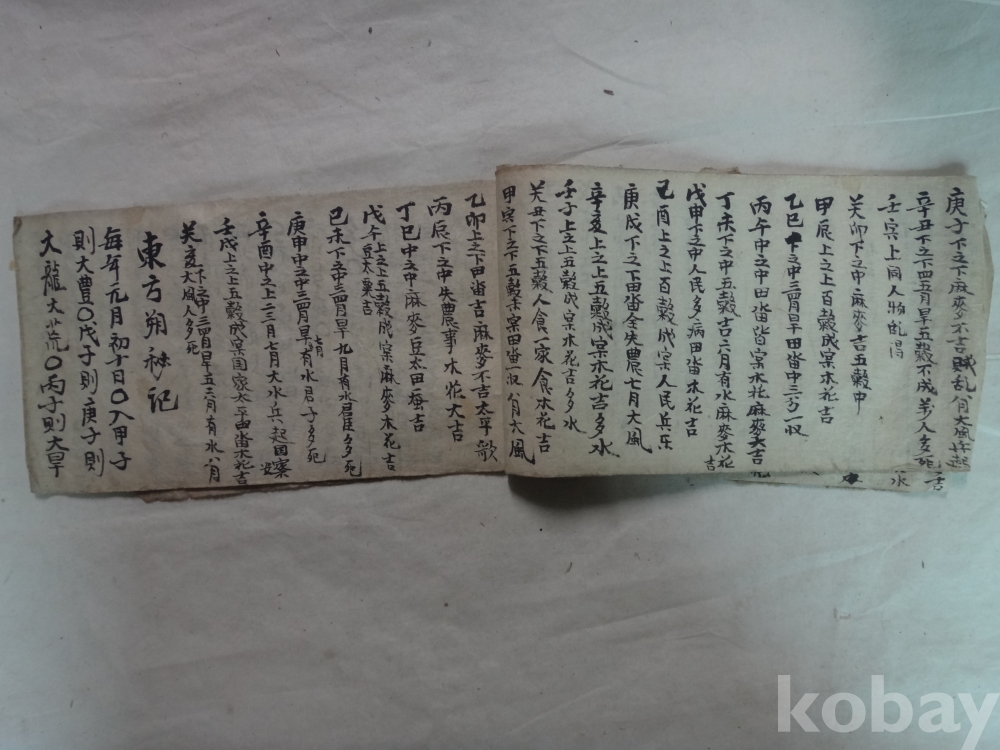 庚子下之下麻麥不吉賊乱八月大風
辛丑下之下四五月旱五穀不成萬人多死
壬寅上同人物乱
癸卯下之中麻麥吉五穀中
甲辰上之上百穀成宲木花吉
乙巳中之中三四月旱田畓中三分一収
丙午中之中田畓皆宲木花麻麥大吉
丁未下之中五穀吉二月有水麻麥木花吉
戊申下之中人民多病田畓木花吉
己酉上之上百穀成宲人民兵乐
庚戌下之下田畓全失農七月大風
辛亥上之上五穀成宲木花吉多水
壬子上之上五穀成宲木花吉多水
癸丑下之下五穀人食一家食木花吉
甲寅下之下五穀不宲田畓一収八月大風
乙卯上之下田畓吉麻麥不吉太平歌
丙辰下之中失農事木花大吉
丁巳中之中麻麥豆太田蚕吉
戊午上之上五穀成宲麻麥木花吉豆太粟吉
己未下之中三四月旱九月有水君臣多死
庚申中之中三四月旱七月有水君子多死
辛酉中之上二三月七月大水兵起國
壬戌上之上五穀成宲国家太平田畓木花吉
癸亥下之中三四月旱五六月有水八月大風人多死
東方朔秘記
每年元月初十日〇入甲子
則大豊〇戊子則庚子則
大龍大荒〇丙子則大旱
kobay